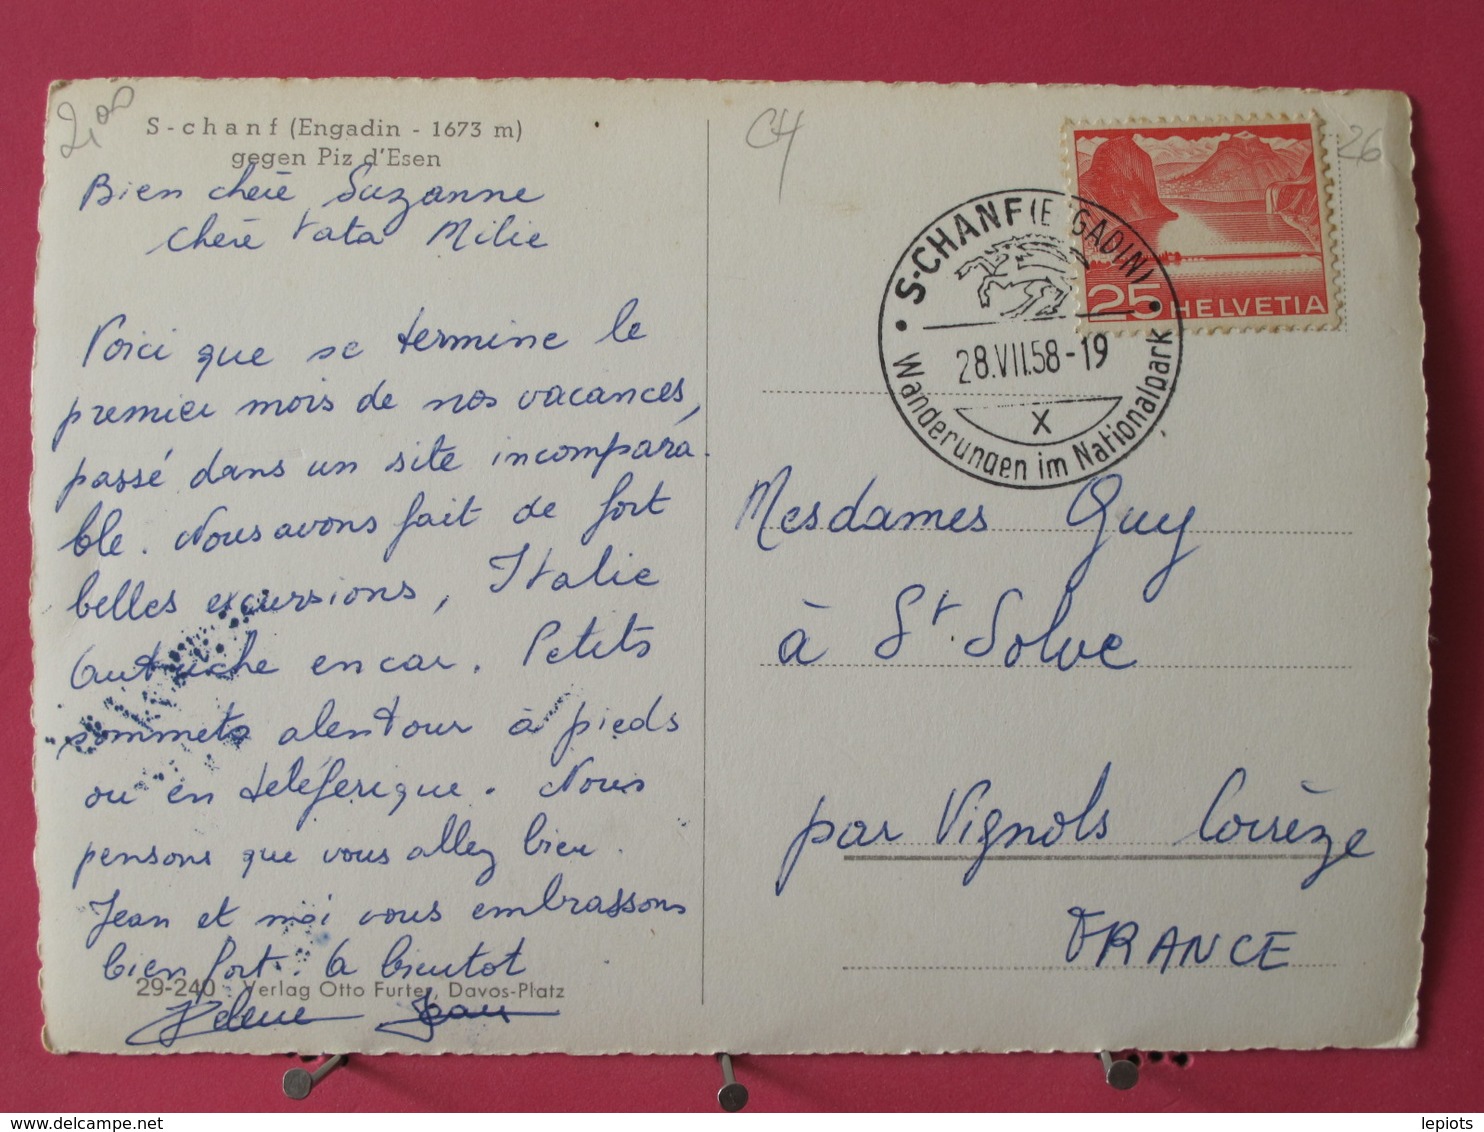 2,00
S-chanf (Engadin - 1673 m)
gegen Piz d'Esen
Bien chère Suzanne
Chère tata Milie
Voici que se termine le
premier mois de nos vacances,
passé dans un site incompara-
ble. Nous avons fait de fort
belles excursions, Italie
Autriche en car. Petits
sommets alentour à pieds
ou en téléférique. Nous
pensons que vous allez bien.
Jean et moi vous embrassons
bien fort. A bientot
29-240 Verlag Otto Furter, Davos-Platz
Helene Jean
CH
26
S-CHANF (ENGADIN)
28.VII.58-19
X
Wanderungen im Nationalpark
25 HELVETIA
Mesdames Guy
à St. Solve
par Vignols Corrèze
FRANCE
delcampe.net
lepiots